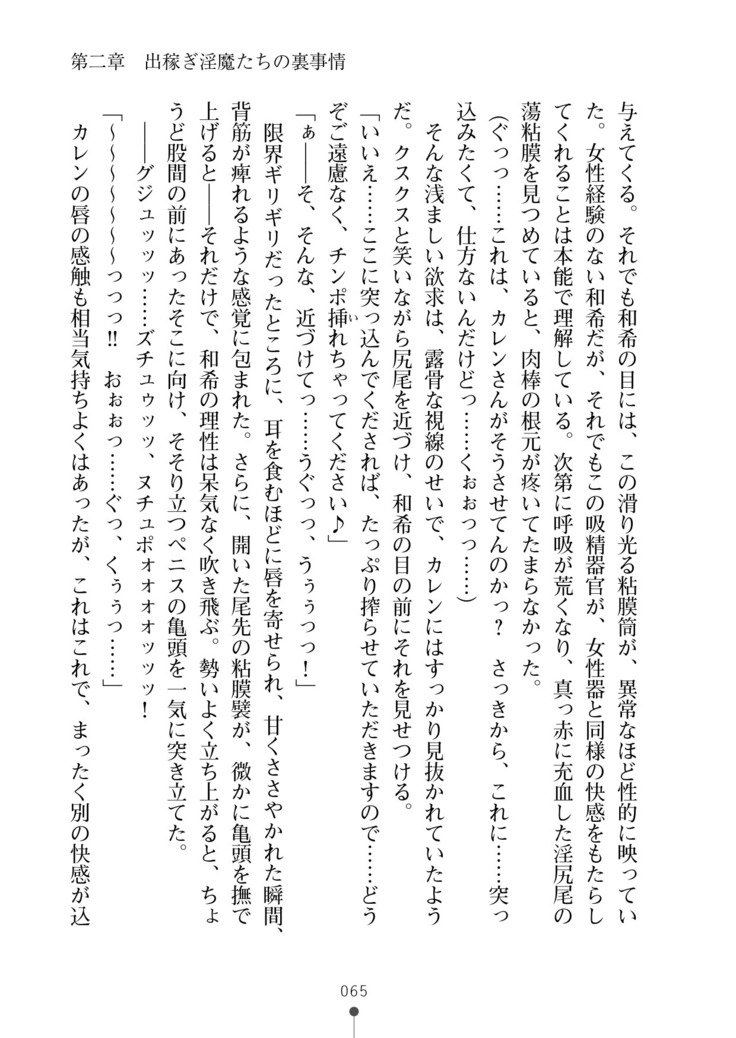 第二章　出稼ぎ淫魔たちの裏事情
与えてくる。それでも和希の目には、この滑り光る粘膜筒が、異常なほど性的に映ってい
た。女性経験のない和希だが、それでもこの吸精器官が、女性器と同様の快感をもたらし
てくれることは本能で理解している。次第に呼吸が荒くなり、真っ赤に充血した淫尻尾の
蕩粘膜を見つめていると、肉棒の根元が疼いてたまらなかった。
（ぐっっ……これは、カレンさんがそうさせてんのかっ？　さっきから、これに……突っ
込みたくて、仕方ないんだけどっ……くぉぉっっ……）
　そんな浅ましい欲求は、露骨な視線のせいで、カレンにはすっかり見抜かれていたよう
だ。クスクスと笑いながら尻尾を近づけ、和希の目の前にそれを見せつける。
「いいえ……ここに突っ込んでくだされば、たっぷり搾らせていただきますので……どう
ぞご遠慮なく、チンポ挿れちゃってください♪」
「ぁ――そ、そんな、近づけてっ……うぐっっ、うぅぅっっ！」
　限界ギリギリだったところに、耳を食むほどに唇を寄せられ、甘くささやかれた瞬間、
背筋が痺れるような感覚に包まれた。さらに、開いた尾先の粘膜襞が、微かに亀頭を撫で
上げると――それだけで、和希の理性は呆気なく吹き飛ぶ。勢いよく立ち上がると、ちょ
うど股間の前にあったそこに向け、そそり立つペニスの亀頭を一気に突き立てた。
　――グジュッッッ……ズチュゥッッッ、ヌチュポォォォォォッッッ！
「～～～～～～～っっっ!!　おぉぉっ……ぐっ、くぅぅっ……」
　カレンの唇の感触も相当気持ちよくはあったが、これはこれで、まったく別の快感が込
065